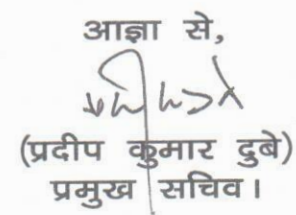 आज्ञा से,
(प्रदीप कुमार दुबे)
प्रमुख सचिव।